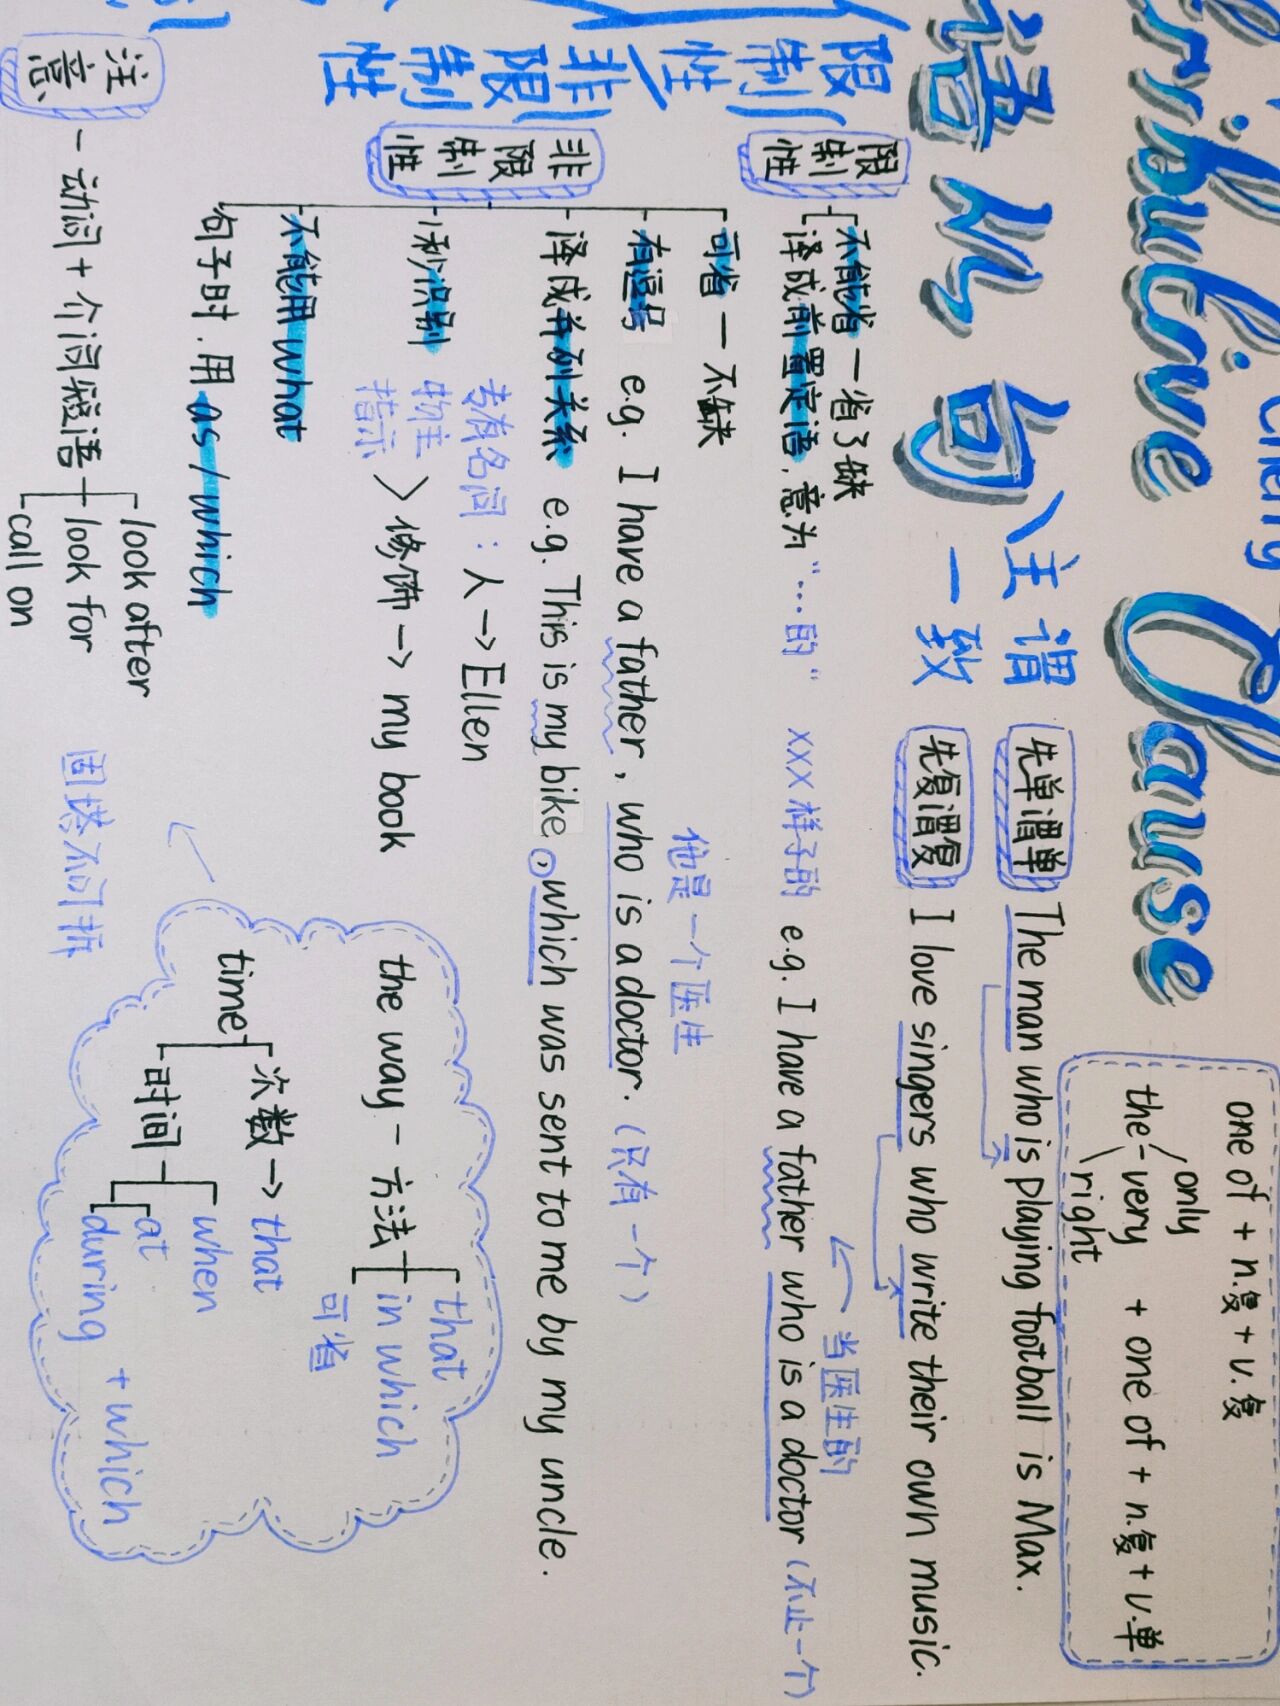 Clause
语从句
主谓一致
one of + n.复 + v.复
the
only
very
right
+ one of + n.复 + v.单
先单谓单
The man who is playing football is Max.
先复谓复
I love singers who write their own music.
限制性/非限制性
限制性
不能省一省了缺
译成前置定语,意为"…的"
xxx样子的
e.g. I have a father who is a doctor (不止一个)
当医生的
非限制性
可省一不缺
他是一个医生
有逗号 e.g. I have a father, who is a doctor. (只有一个)
译成并列关系 e.g. This is my bike, which was sent to me by my uncle.
1秒识别
专有名词:人→Ellen
物主
指示
修饰→my book
不能用what
句子时.用as/which
the way - 方法
that
in which
可省
time
次数→that
时间
when
at
during
+ which
注意
一动词+介词短语
look after
look for
call on
固搭不可拆